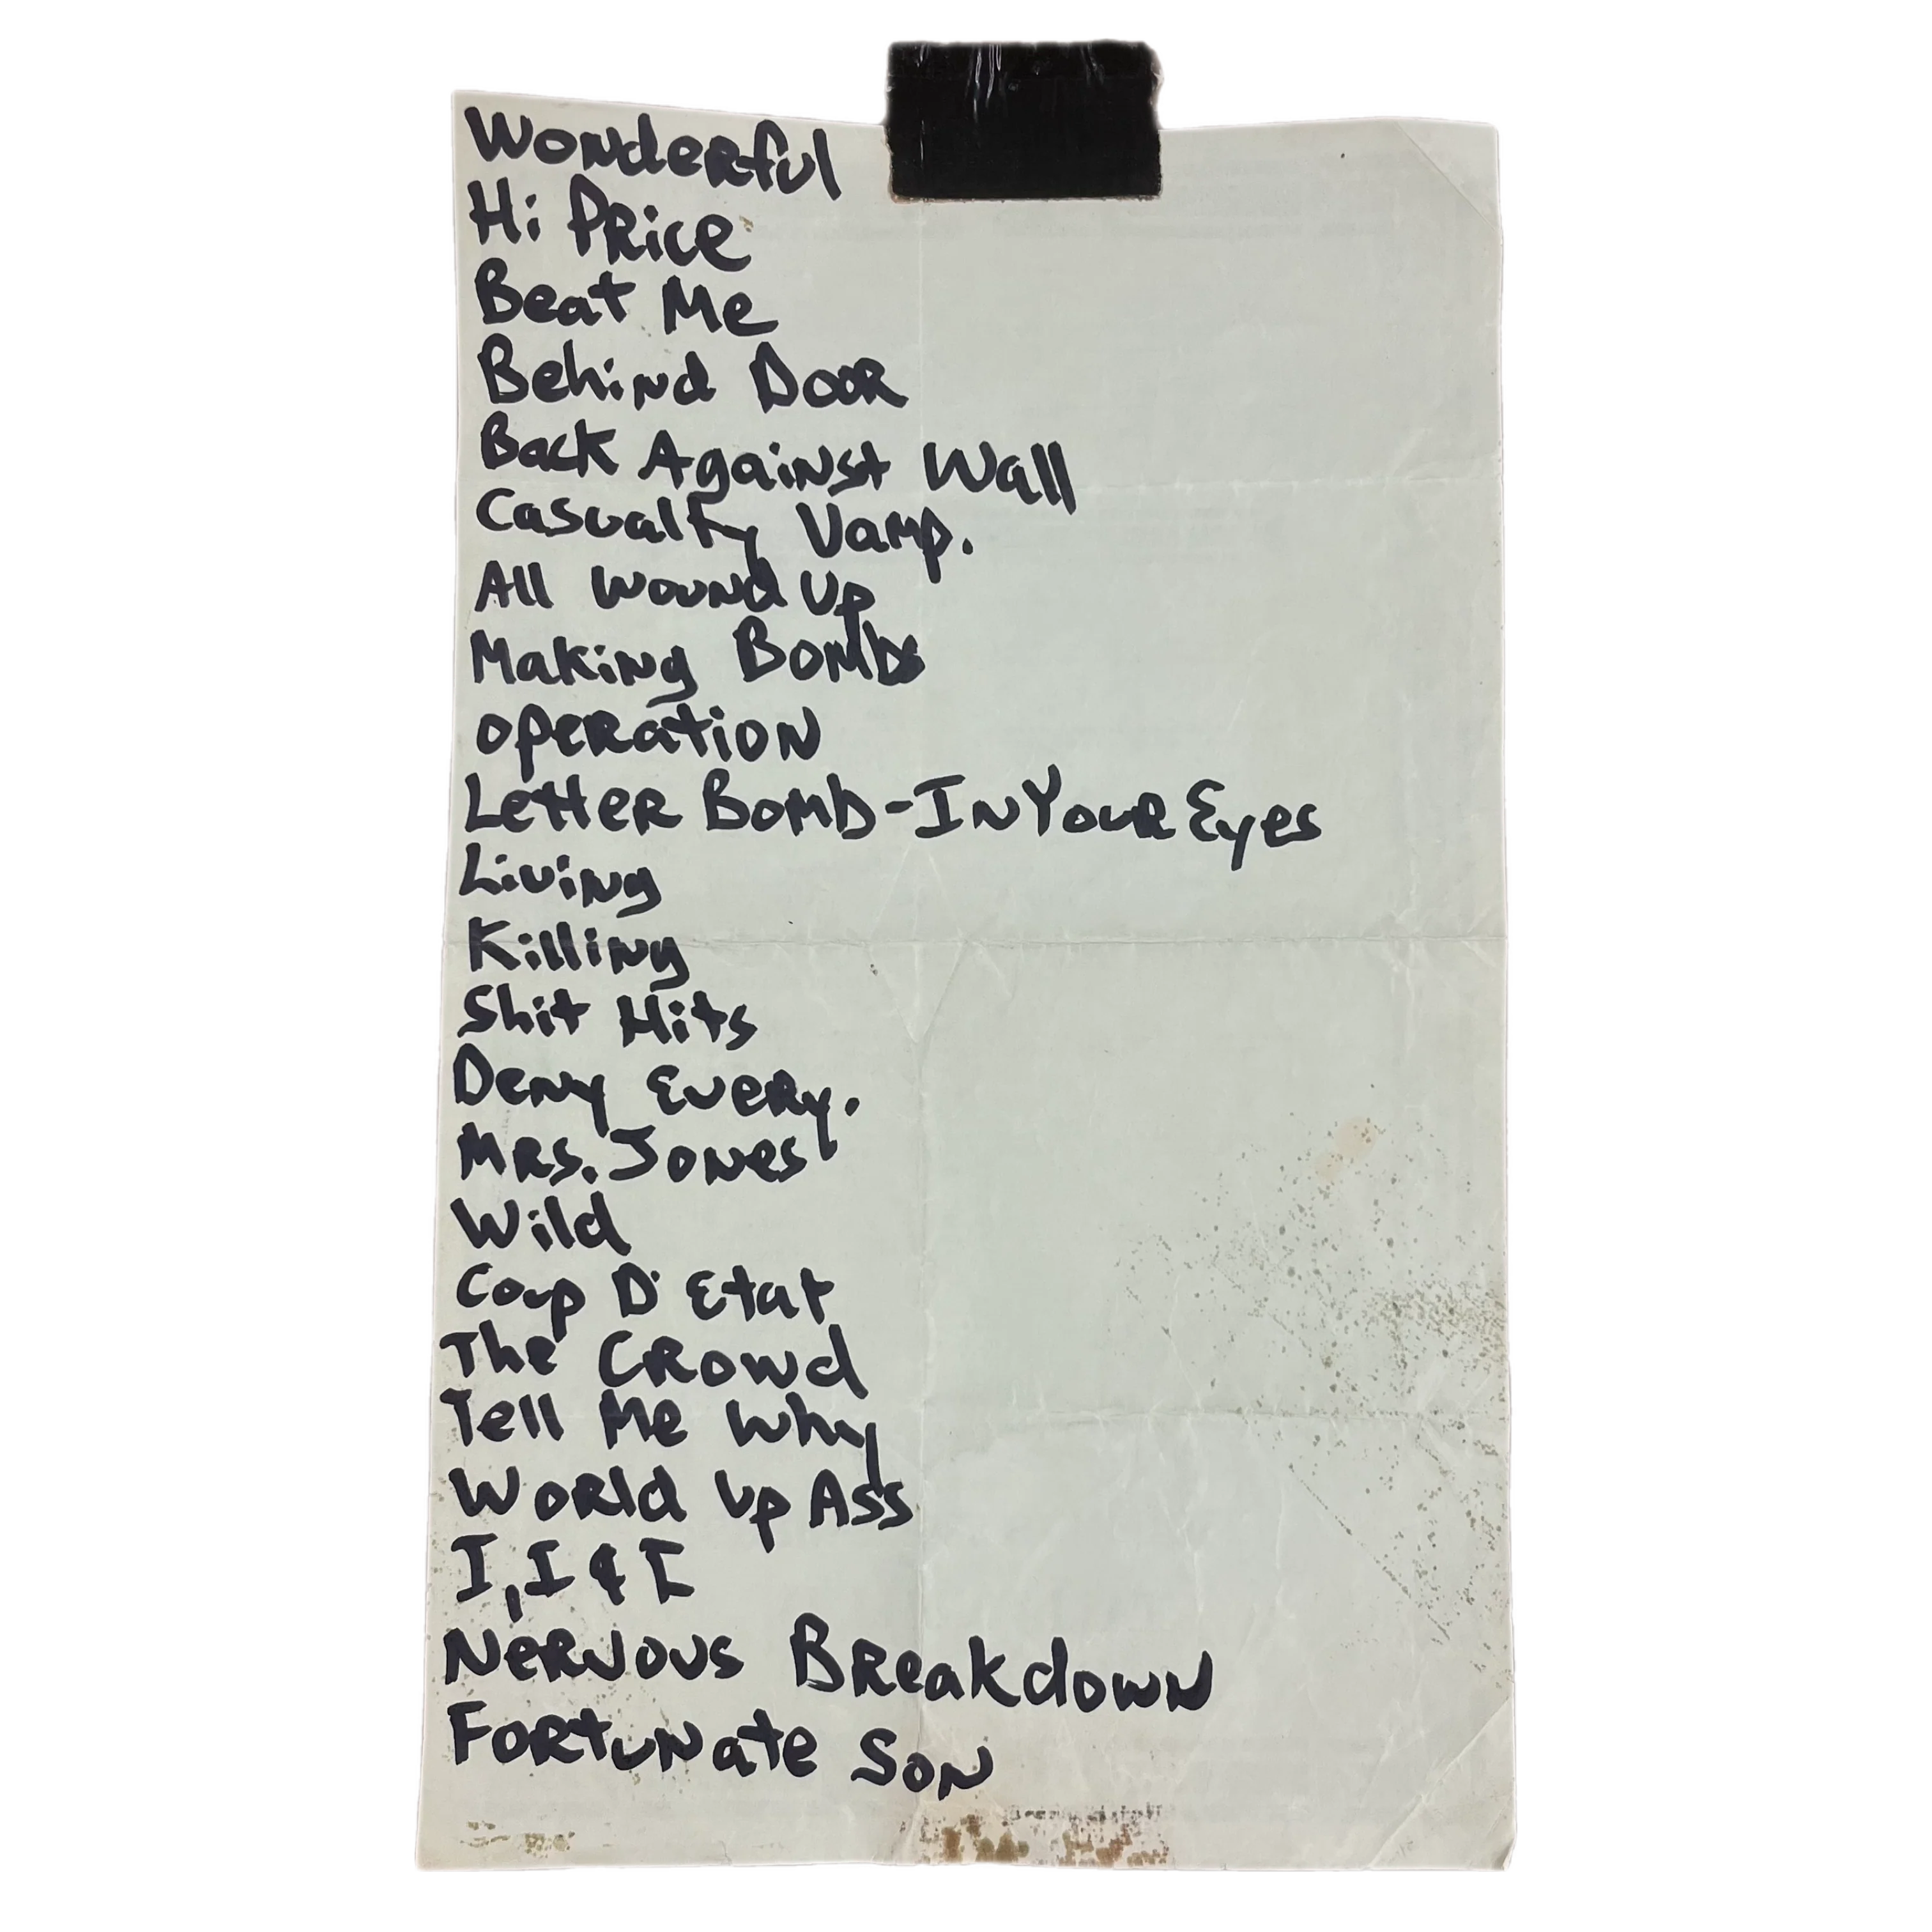 Wonderful
Hi Price
Beat Me
Behind Door
Back Against Wall
Casualty Vamp.
All Wound Up
Making Bombs
Operation
Letter Bomb - In Your Eyes
Living
Killing
Shit Hits
Deny Every.
Mrs. Jones
Wild
Coup D' Etat
The Crowd
Tell Me Why
World Up Ass
I, I & I
Nervous Breakdown
Fortunate Son